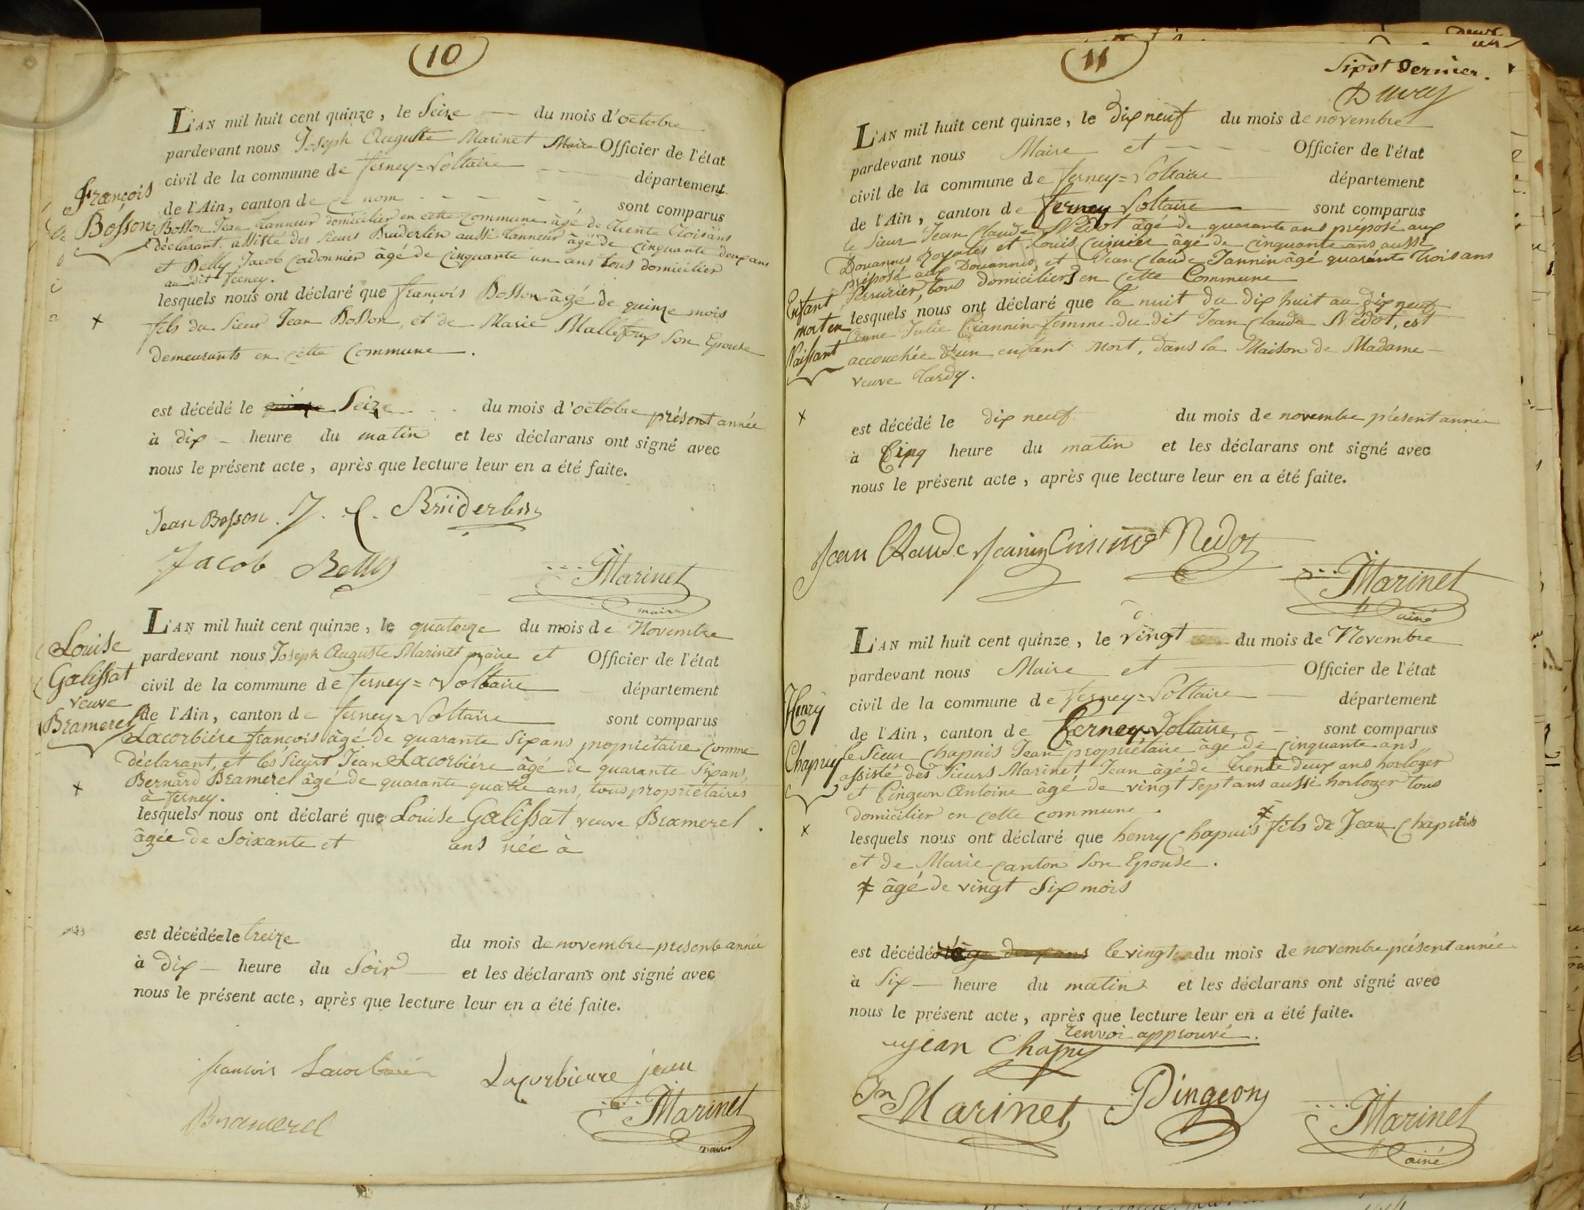 10
L'AN mil huit cent quinze, le Seize du mois d'octobre
pardevant nous Joseph Auguste Marinet Maire Officier de l'état
civil de la commune de ferney=Voltaire département
de l'Ain, canton de ce nom sont comparus
François
Bosson
Bosson Jean tanneur domicilier en cette commune âgé de trente trois ans
déclarant, assisté des Sieurs Bruderlen aussi tanneur âgé de cinquante deux ans
et Belly Jacob Cordonnier âgé de cinquante un ans tous domicilier
au dit ferney.
lesquels nous ont déclaré que françois Bosson âgé de quinze mois
fils du Sieur Jean Bosson, et de Marie Son Epouse
demeurants en cette Commune.
est décédé le Seize du mois d'octobre présent année
à dix heure du matin et les déclarans ont signé avec
nous le présent acte, après que lecture leur en a été faite.
Jean Bosson. J. C. Brüderlin
Jacob Belly
Marinet
maire
L'AN mil huit cent quinze, le quatorze du mois de Novembre
pardevant nous Joseph Auguste Marinet maire et Officier de l'état
civil de la commune de ferney=Voltaire département
de l'Ain, canton de ferney=Voltaire sont comparus
Louise
Galissat
veuve
Bramerel
Lacorbière françois âgé de quarante Six ans propriétaire comme
déclarant, et les Sieurs Jean Lacorbière âgé de quarante Six ans,
Bernard Bramerel âgé de quarante quatre ans, tous propriétaires
à ferney.
lesquels nous ont déclaré que Louise Galissat veuve Bramerel.
âgée de Soixante et ans née à
est décédée le treize du mois de novembre présente année
à dix heure du Soir et les déclarans ont signé avec
nous le présent acte, après que lecture leur en a été faite.
francois Lacorbière Lacorbierre jean
Bramerel
Marinet
maire
11
Sixot Dernier.
L'AN mil huit cent quinze, le dix neuf du mois de novembre
pardevant nous Maire et Officier de l'état
civil de la commune de ferney=Voltaire département
de l'Ain, canton de ferney Voltaire sont comparus
le Sieur Jean Claude Nédot âgé de quarante ans préposé aux
Douannes royales et Louis Cuinier âgé de cinquante ans aussi
préposé aux Douannes, et Jean Claude Jannin âgé quarante trois ans
Serrurier, tous domiciliers en cette Commune
Enfant
mort en
Naissant
lesquels nous ont déclaré que la nuit du dix huit au dix neuf
Anne Julie Jeannin femme du dit Jean Claude Nédot, est
accouchée d'un enfant mort, dans la Maison de Madame
veuve Tardy.
est décédé le dix neuf du mois de novembre présent année
à Cinq heure du matin et les déclarans ont signé avec
nous le présent acte, après que lecture leur en a été faite.
Jean Claude Jeanin Nedot
Marinet
ainé
L'AN mil huit cent quinze, le vingt du mois de Novembre
pardevant nous Maire et Officier de l'état
civil de la commune de Ferney=Voltaire département
de l'Ain, canton de Ferney-Voltaire, sont comparus
Henry
Chapuy
le Sieur Chapuis Jean propriétaire âgé de cinquante ans
assisté des Sieurs Marinet Jean âgé de trente deux ans horloger
et Pingeon Antoine âgé de vingt Sept ans aussi horloger tous
domicilier en cette commune.
lesquels nous ont déclaré que henry Chapuis fils de Jean Chapuis
et de Marie Canton Son Epouse.
âgé de vingt Six mois
est décédé le vingt du mois de novembre présent année
à Six heure du matin et les déclarans ont signé avec
nous le présent acte, après que lecture leur en a été faite.
renvoi approuvé.
jean Chapuy
Jn Marinet Pingeon
Marinet
ainé